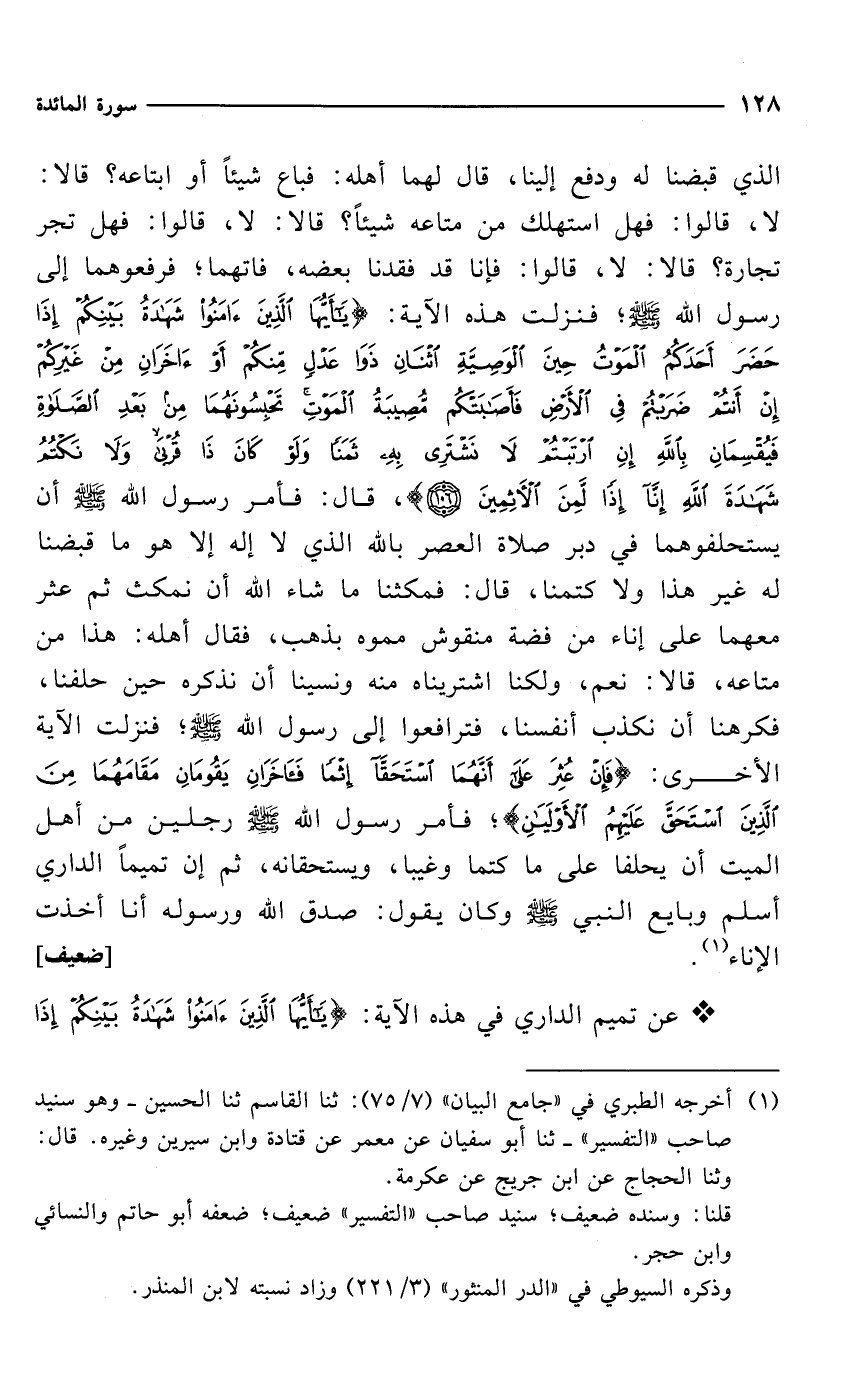 ١٢٨ سورة المائدة
الذي قبضنا له ودفع إلينا، قال لهما أهله: فباع شيئاً أو ابتاعه؟ قالا:
لا، قالوا: فهل استهلك من متاعه شيئاً؟ قالا: لا، قالوا: فهل تجر
تجارة؟ قالا: لا، قالوا: فإنا قد فقدنا بعضه، فاتهما؛ فرفعوهما إلى
رسول الله ﷺ؛ فنزلت هذه الآية: ﴿يَٰٓأَيُّهَا ٱلَّذِينَ ءَامَنُوا۟ شَهَٰدَةُ بَيْنِكُمْ إِذَا
حَضَرَ أَحَدَكُمُ ٱلْمَوْتُ حِينَ ٱلْوَصِيَّةِ ٱثْنَانِ ذَوَا عَدْلٍ مِّنكُمْ أَوْ ءَاخَرَانِ مِنْ غَيْرِكُمْ
إِنْ أَنتُمْ ضَرَبْتُمْ فِى ٱلْأَرْضِ فَأَصَٰبَتْكُم مُّصِيبَةُ ٱلْمَوْتِ ۚ تَحْبِسُونَهُمَا مِنۢ بَعْدِ ٱلصَّلَوٰةِ
فَيُقْسِمَانِ بِٱللَّهِ إِنِ ٱرْتَبْتُمْ لَا نَشْتَرِى بِهِۦ ثَمَنًا وَلَوْ كَانَ ذَا قُرْبَىٰ ۙ وَلَا نَكْتُمُ
شَهَٰدَةَ ٱللَّهِ إِنَّآ إِذًا لَّمِنَ ٱلْءَاثِمِينَ ١٠٦﴾، قال: فأمر رسول الله ﷺ أن
يستحلفوهما في دبر صلاة العصر بالله الذي لا إله إلا هو ما قبضنا
له غير هذا ولا كتمنا، قال: فمكثنا ما شاء الله أن نمكث ثم عثر
معهما على إناء من فضة منقوش مموه بذهب، فقال أهله: هذا من
متاعه، قالا: نعم، ولكنا اشتريناه منه ونسينا أن نذكره حين حلفنا،
فكرهنا أن نكذب أنفسنا، فترافعوا إلى رسول الله ﷺ؛ فنزلت الآية
الأخرى: ﴿فَإِنْ عُثِرَ عَلَىٰٓ أَنَّهُمَا ٱسْتَحَقَّآ إِثْمًا فَـَٔاخَرَانِ يَقُومَانِ مَقَامَهُمَا مِنَ
ٱلَّذِينَ ٱسْتَحَقَّ عَلَيْهِمُ ٱلْأَوْلَيَٰنِ﴾؛ فأمر رسول الله ﷺ رجلين من أهل
الميت أن يحلفا على ما كتما وغيبا، ويستحقانه، ثم إن تميماً الداري
أسلم وبايع النبي ﷺ وكان يقول: صدق الله ورسوله أنا أخذت
الإناء(١). [ضعيف]
❖ عن تميم الداري في هذه الآية: ﴿يَٰٓأَيُّهَا ٱلَّذِينَ ءَامَنُوا۟ شَهَٰدَةُ بَيْنِكُمْ إِذَا
(١) أخرجه الطبري في «جامع البيان» (٧/ ٧٥): ثنا القاسم ثنا الحسين ـ وهو سنيد
صاحب «التفسير» ـ ثنا أبو سفيان عن معمر عن قتادة وابن سيرين وغيره. قال:
وثنا الحجاج عن ابن جريج عن عكرمة.
قلنا: وسنده ضعيف؛ سنيد صاحب «التفسير» ضعيف؛ ضعفه أبو حاتم والنسائي
وابن حجر.
وذكره السيوطي في «الدر المنثور» (٣/ ٢٢١) وزاد نسبته لابن المنذر.